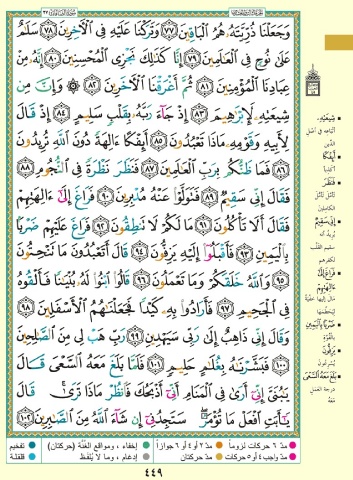 وَجَعَلْنَا ذُرِّيَّتَهُۥ هُمُ ٱلْبَاقِينَ ٧٧ وَتَرَكْنَا عَلَيْهِ فِى ٱلْءَاخِرِينَ ٧٨ سَلَٰمٌ
عَلَىٰ نُوحٍ فِى ٱلْعَٰلَمِينَ ٧٩ إِنَّا كَذَٰلِكَ نَجْزِى ٱلْمُحْسِنِينَ ٨٠ إِنَّهُۥ مِنْ
عِبَادِنَا ٱلْمُؤْمِنِينَ ٨١ ثُمَّ أَغْرَقْنَا ٱلْءَاخَرِينَ ٨٢ ۞ وَإِنَّ مِن
شِيعَتِهِۦ لَإِبْرَٰهِيمَ ٨٣ إِذْ جَآءَ رَبَّهُۥ بِقَلْبٍ سَلِيمٍ ٨٤ إِذْ قَالَ
لِأَبِيهِ وَقَوْمِهِۦ مَاذَا تَعْبُدُونَ ٨٥ أَئِفْكًا ءَالِهَةً دُونَ ٱللَّهِ تُرِيدُونَ
٨٦ فَمَا ظَنُّكُم بِرَبِّ ٱلْعَٰلَمِينَ ٨٧ فَنَظَرَ نَظْرَةً فِى ٱلنُّجُومِ ٨٨
فَقَالَ إِنِّى سَقِيمٌ ٨٩ فَتَوَلَّوْا۟ عَنْهُ مُدْبِرِينَ ٩٠ فَرَاغَ إِلَىٰٓ ءَالِهَتِهِمْ
فَقَالَ أَلَا تَأْكُلُونَ ٩١ مَا لَكُمْ لَا تَنطِقُونَ ٩٢ فَرَاغَ عَلَيْهِمْ ضَرْبًۢا
بِٱلْيَمِينِ ٩٣ فَأَقْبَلُوٓا۟ إِلَيْهِ يَزِفُّونَ ٩٤ قَالَ أَتَعْبُدُونَ مَا تَنْحِتُونَ
٩٥ وَٱللَّهُ خَلَقَكُمْ وَمَا تَعْمَلُونَ ٩٦ قَالُوا۟ ٱبْنُوا۟ لَهُۥ بُنْيَٰنًا فَأَلْقُوهُ
فِى ٱلْجَحِيمِ ٩٧ فَأَرَادُوا۟ بِهِۦ كَيْدًا فَجَعَلْنَٰهُمُ ٱلْأَسْفَلِينَ ٩٨
وَقَالَ إِنِّى ذَاهِبٌ إِلَىٰ رَبِّى سَيَهْدِينِ ٩٩ رَبِّ هَبْ لِى مِنَ ٱلصَّٰلِحِينَ
١٠٠ فَبَشَّرْنَٰهُ بِغُلَٰمٍ حَلِيمٍ ١٠١ فَلَمَّا بَلَغَ مَعَهُ ٱلسَّعْىَ قَالَ
يَٰبُنَىَّ إِنِّىٓ أَرَىٰ فِى ٱلْمَنَامِ أَنِّىٓ أَذْبَحُكَ فَٱنظُرْ مَاذَا تَرَىٰ ۚ قَالَ
يَٰٓأَبَتِ ٱفْعَلْ مَا تُؤْمَرُ ۖ سَتَجِدُنِىٓ إِن شَآءَ ٱللَّهُ مِنَ ٱلصَّٰبِرِينَ ١٠٢
شِيعَتِهِ
أَئِفْكًا
فَنَظَرَ
إِنِّي سَقِيمٌ
فَرَاغَ إِلَى
ضَرْبًا بِالْيَمِينِ
يَزِفُّونَ
بَلَغَ مَعَهُ السَّعْيَ
درجة العمل معه
مدّ ٦ حركات لزوماً مدّ ٢ أو ٤ أو ٦ جوازاً إخفاء، ومواقع الغنّة (حركتان) تفخيم
مدّ واجب ٤ أو ٥ حركات مدّ حركتان إدغام، وما لا يُلفظ قلقلة
٤٤٩